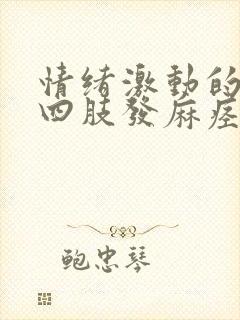 情绪激動的
四肢發麻痉
鲍忠琴